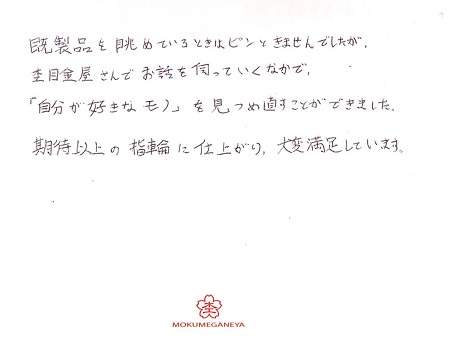 既製品を眺めているときはピンときませんでしたが、
杢目金屋さんでお話を伺っていくなかで、
「自分が好きなモノ」を見つめ直すことができました。
期待以上の指輪に仕上がり、大変満足しています。
杢
MOKUMEGANEYA